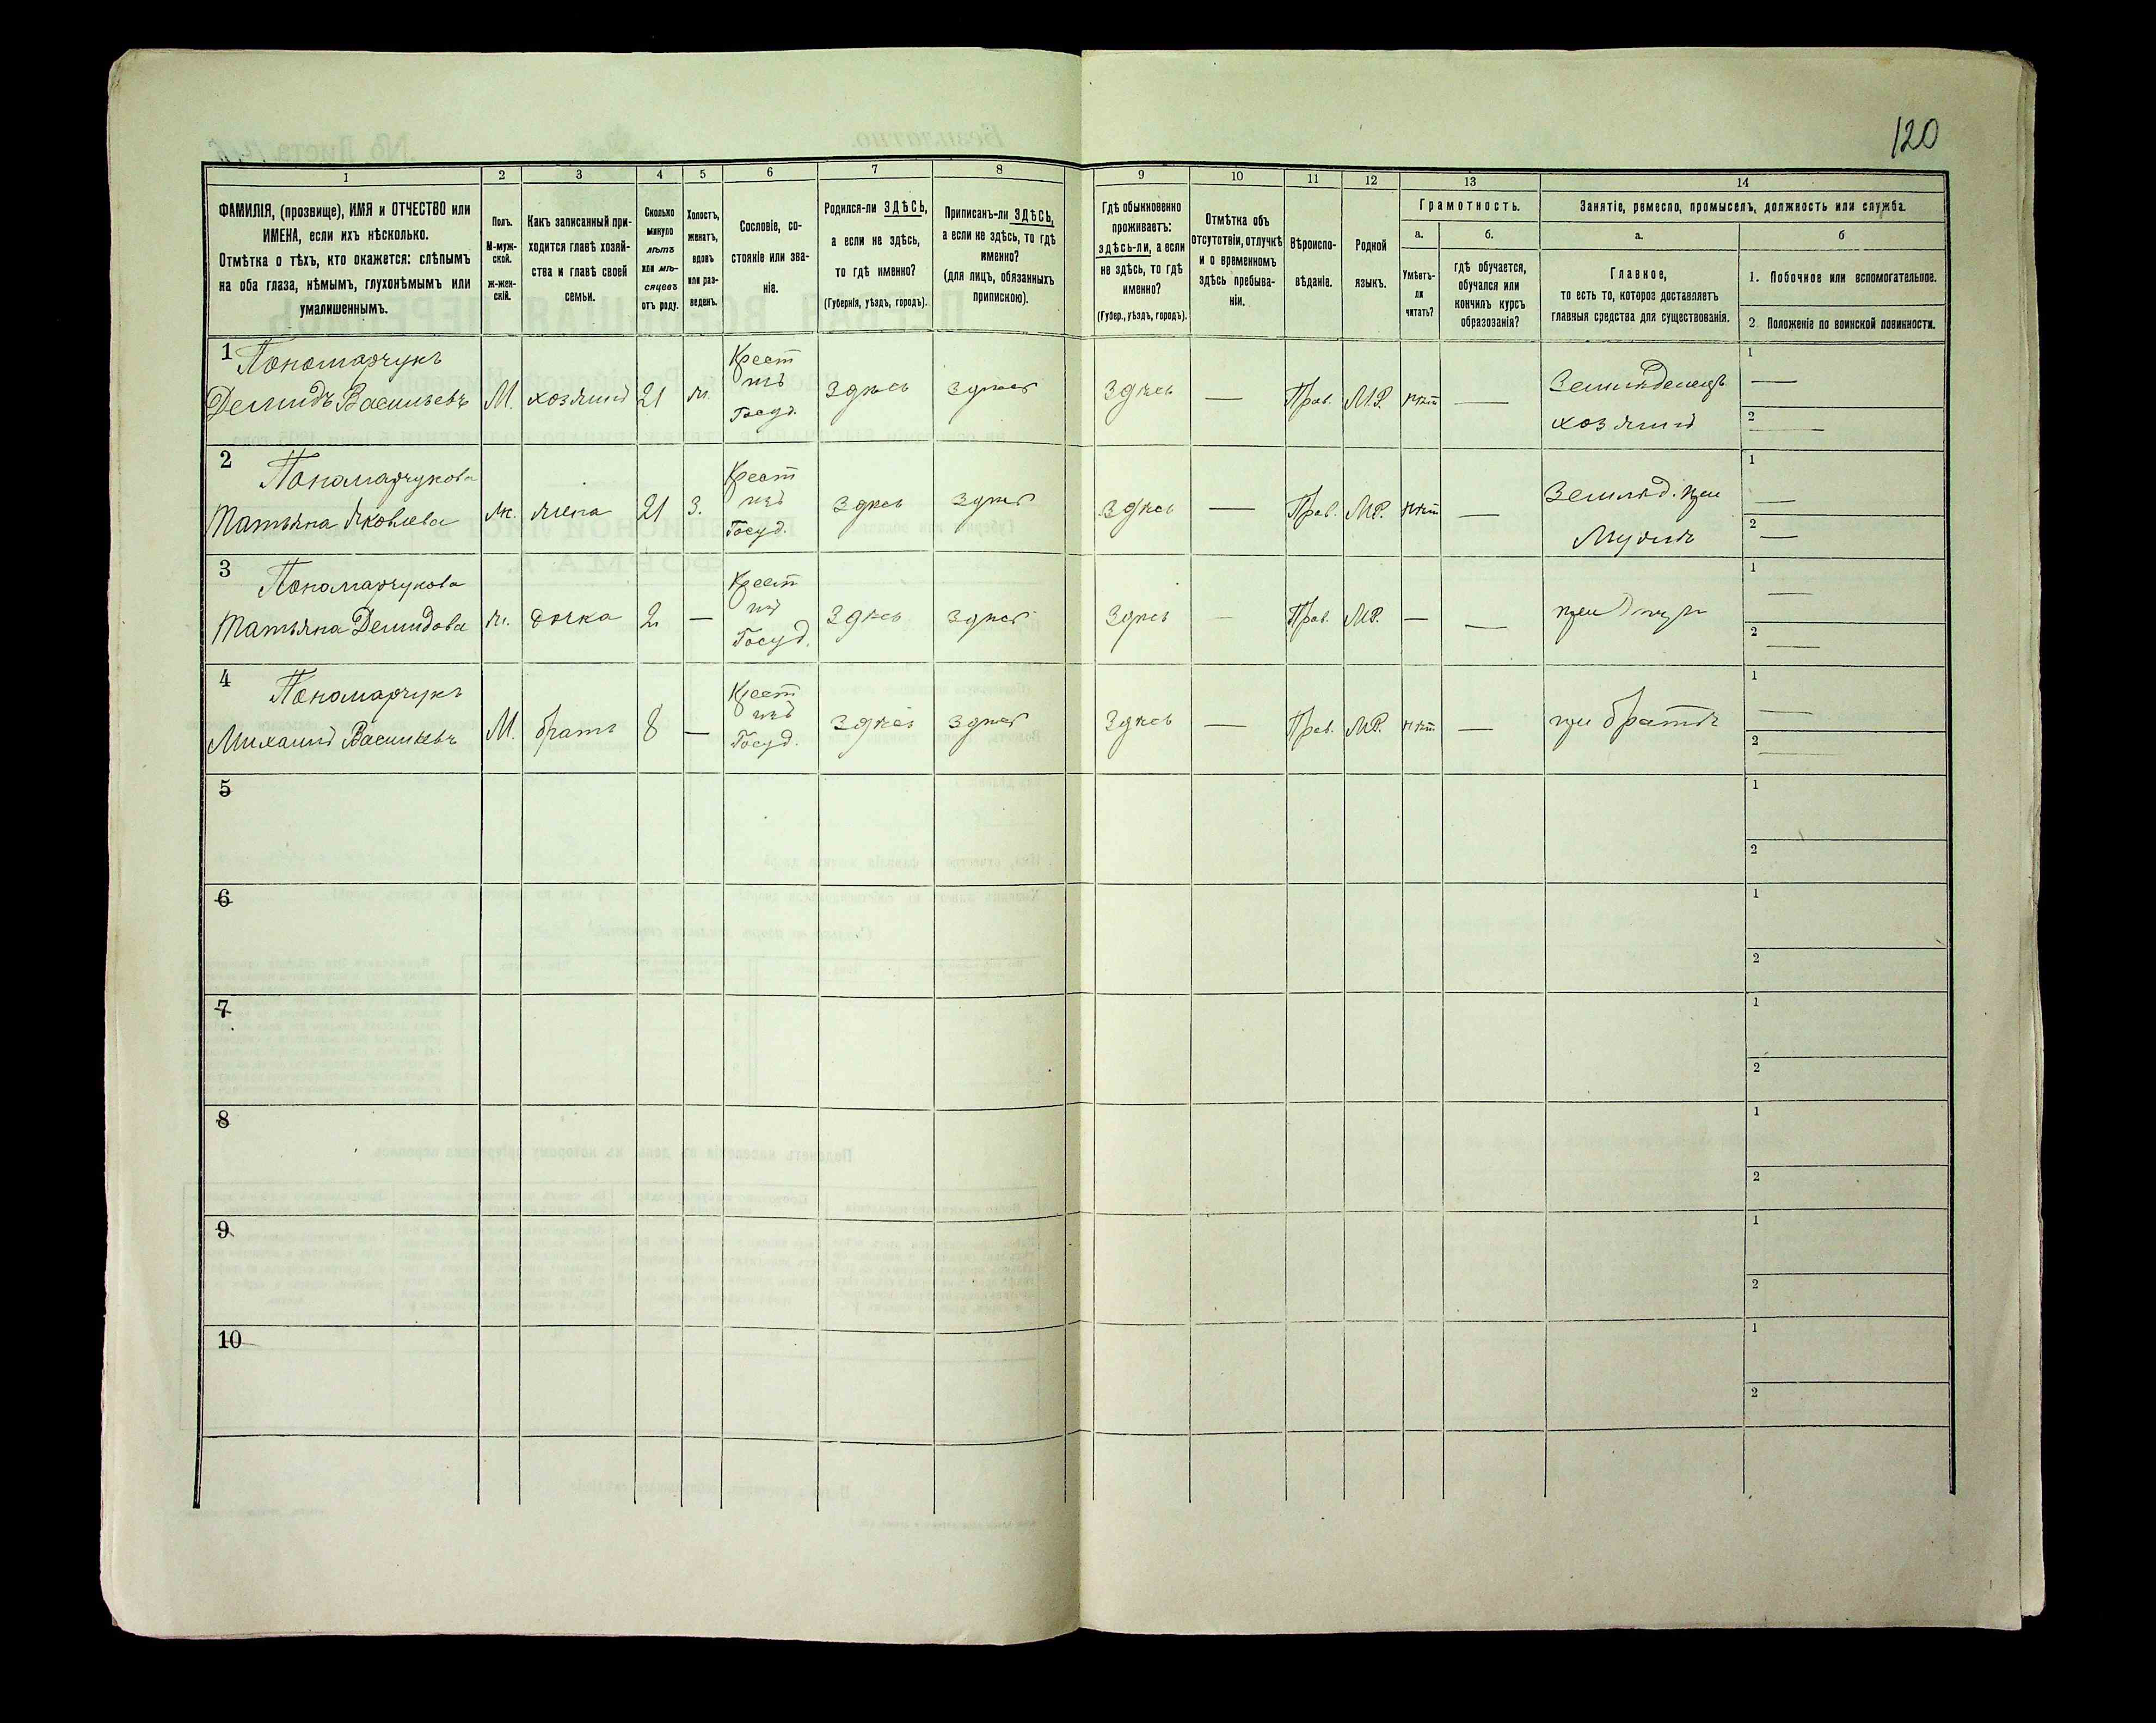 120
1
2
3
4
5
6
7
8
9
10
11
12
13
14
ФАМИЛІЯ, (прозвище), ИМЯ и ОТЧЕСТВО или
ИМЕНА, если ихъ нѣсколько.
Отмѣтка о тѣхъ, кто окажется: слѣпымъ
на оба глаза, нѣмымъ, глухонѣмымъ или
умалишеннымъ.
Полъ.
М-муж-
ской.
ж-жен-
скій.
Какъ записанный при-
ходится главѣ хозяй-
ства и главѣ своей
семьи.
Сколько
минуло
лѣтъ
или мѣ-
сяцевъ
отъ роду.
Холостъ,
женатъ,
вдовъ
или раз-
веденъ.
Сословіе, со-
стояніе или зва-
ніе.
Родился-ли ЗДѢСЬ,
а если не здѣсь,
то гдѣ именно?
(Губернія, уѣздъ, городъ).
Приписанъ-ли ЗДѢСЬ,
а если не здѣсь, то гдѣ
именно?
(для лицъ, обязанныхъ
припискою).
Гдѣ обыкновенно
проживаетъ:
здѣсь-ли, а если
не здѣсь, то гдѣ
именно?
(Губер., уѣздъ, городъ).
Отмѣтка объ
отсутствіи, отлучкѣ
и о временномъ
здѣсь пребыва-
ніи.
Вѣроиспо-
вѣданіе.
Родной
языкъ.
Грамотность.
а.
Умѣетъ-
ли
читать?
б.
гдѣ обучается,
обучался или
кончилъ курсъ
образозанія?
Занятіе, ремесло, промыселъ, должность или служба.
а.
Главное,
то есть то, котороз доставляетъ
главныя средства для существованія.
б
1. Побочное или вспомогательное.
2 Положеніе по воинской повинности.
1 Пономарчукъ
Демидъ Васильевъ
М.
хозяинъ
21
ж.
Крест
изъ
Госуд.
Здѣсь
Здѣсь
Здѣсь
—
Прав.
М.Р.
нѣт
—
Земледелецъ
хозяинъ
1
—
2
—
2 Пономарчукова
Татьяна Яковлева
ж.
жена
21
З.
Крест
изъ
Госуд.
Здѣсь
Здѣсь
Здѣсь
—
Прав.
М.Р.
нѣт
—
Землѣд. при
Мужѣ
1
—
2
—
3 Пономарчукова
Татьяна Демидова
ж.
дочка
2
—
Крест
изъ
Госуд.
Здѣсь
Здѣсь
Здѣсь
—
Прав.
М.Р.
—
—
при
1
—
2
—
4 Пономарчукъ
Михаилъ Васильевъ
М.
братъ
8
—
Крест
изъ
Госуд.
Здѣсь
Здѣсь
Здѣсь
—
Прав.
М.Р.
нѣт
—
при братѣ
1
—
2
—
5
1
2
6
1
2
7
1
2
8
1
2
9
1
2
10
1
2